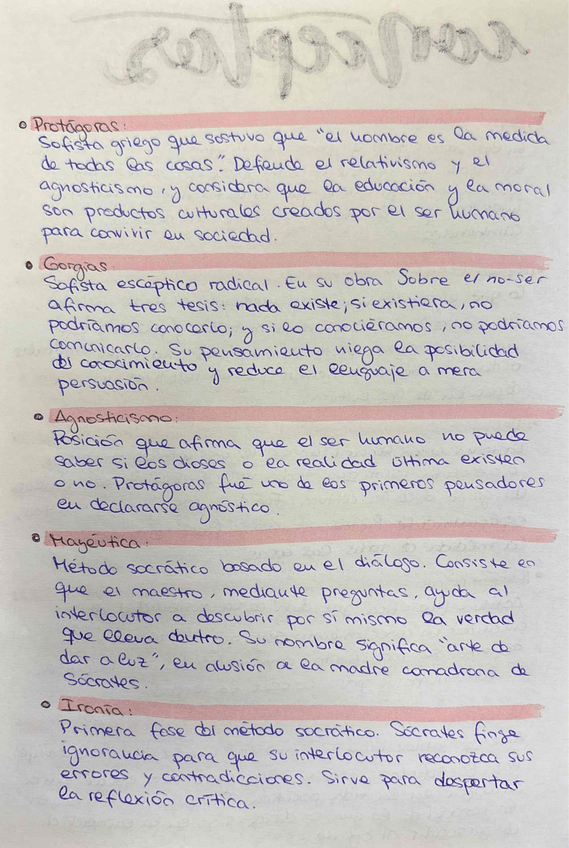 conceptos
• Protágoras:
Sofista griego que sostuvo que "el hombre es la medida
de todas las cosas". Defiende el relativismo y el
agnosticismo, y considera que la educación y la moral
son productos culturales creados por el ser humano
para convivir en sociedad.
• Gorgias
Sofista escéptico radical. En su obra Sobre el no-ser
afirma tres tesis: nada existe; si existiera, no
podríamos conocerlo; y si lo conociéramos, no podríamos
comunicarlo. Su pensamiento niega la posibilidad
del conocimiento y reduce el lenguaje a mera
persuasión.
• Agnosticismo:
Posición que afirma que el ser humano no puede
saber si los dioses o la realidad última existen
o no. Protágoras fué uno de los primeros pensadores
en declararse agnóstico.
• Mayéutica:
Método socrático basado en el diálogo. Consiste en
que el maestro, mediante preguntas, ayuda al
interlocutor a descubrir por sí mismo la verdad
que lleva dentro. Su nombre significa "arte de
dar a luz", en alusión a la madre comadrona de
Sócrates.
• Ironía:
Primera fase del método socrático. Sócrates finge
ignorancia para que su interlocutor reconozca sus
errores y contradicciones. Sirve para despertar
la reflexión crítica.